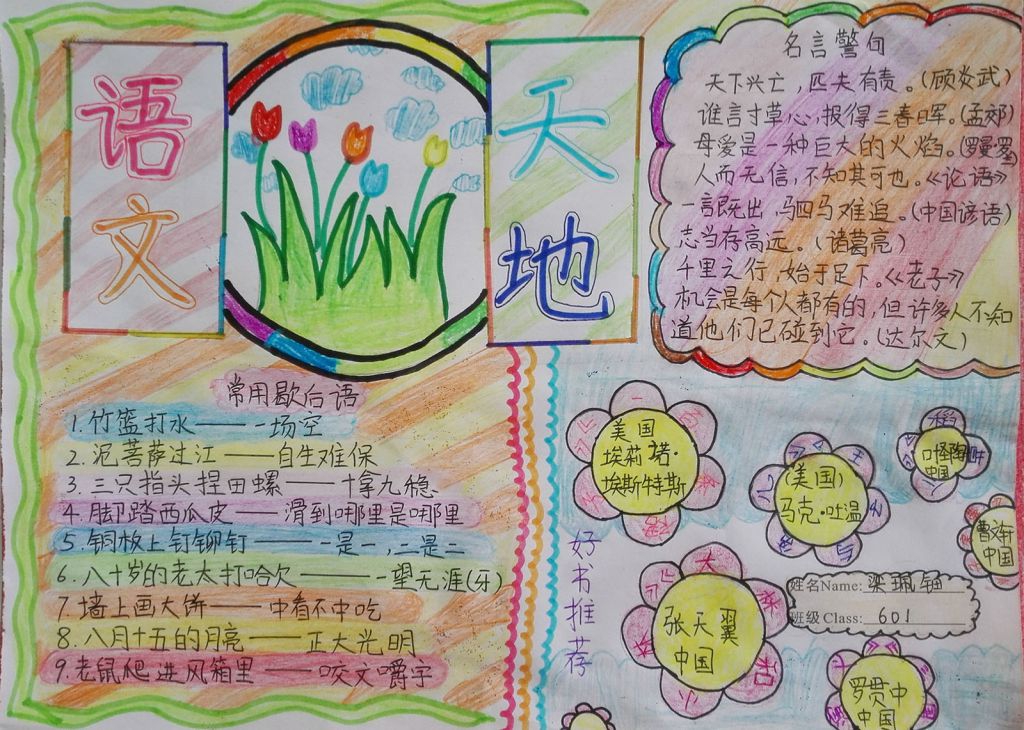 语文
天地
名言警句
天下兴亡，匹夫有责。(顾炎武)
谁言寸草心，报得三春晖。(孟郊)
母爱是一种巨大的火焰。(罗曼罗)
人而无信，不知其可也。《论语》
一言既出，驷马难追。(中国谚语)
志当存高远。(诸葛亮)
千里之行，始于足下。《老子》
机会是每个人都有的，但许多人不知
道他们已碰到它。(达尔文)
常用歇后语
1.竹篮打水——一场空
2.泥菩萨过江——自生难保
3.三只指头捏田螺——十拿九稳
4.脚踏西瓜皮——滑到哪里是哪里
5.铜板上钉铆钉——一是一，二是二
6.八十岁的老太打哈欠——一望无涯(牙)
7.墙上画大饼——中看不中吃
8.八月十五的月亮——正大光明
9.老鼠爬进风箱里——咬文嚼字
好书推荐
美国
埃莉诺·
埃斯特斯
(美国)
马克·吐温
中国
曹文轩
中国
张天翼
中国
罗贯中
中国
姓名Name:
班级 Class: 601